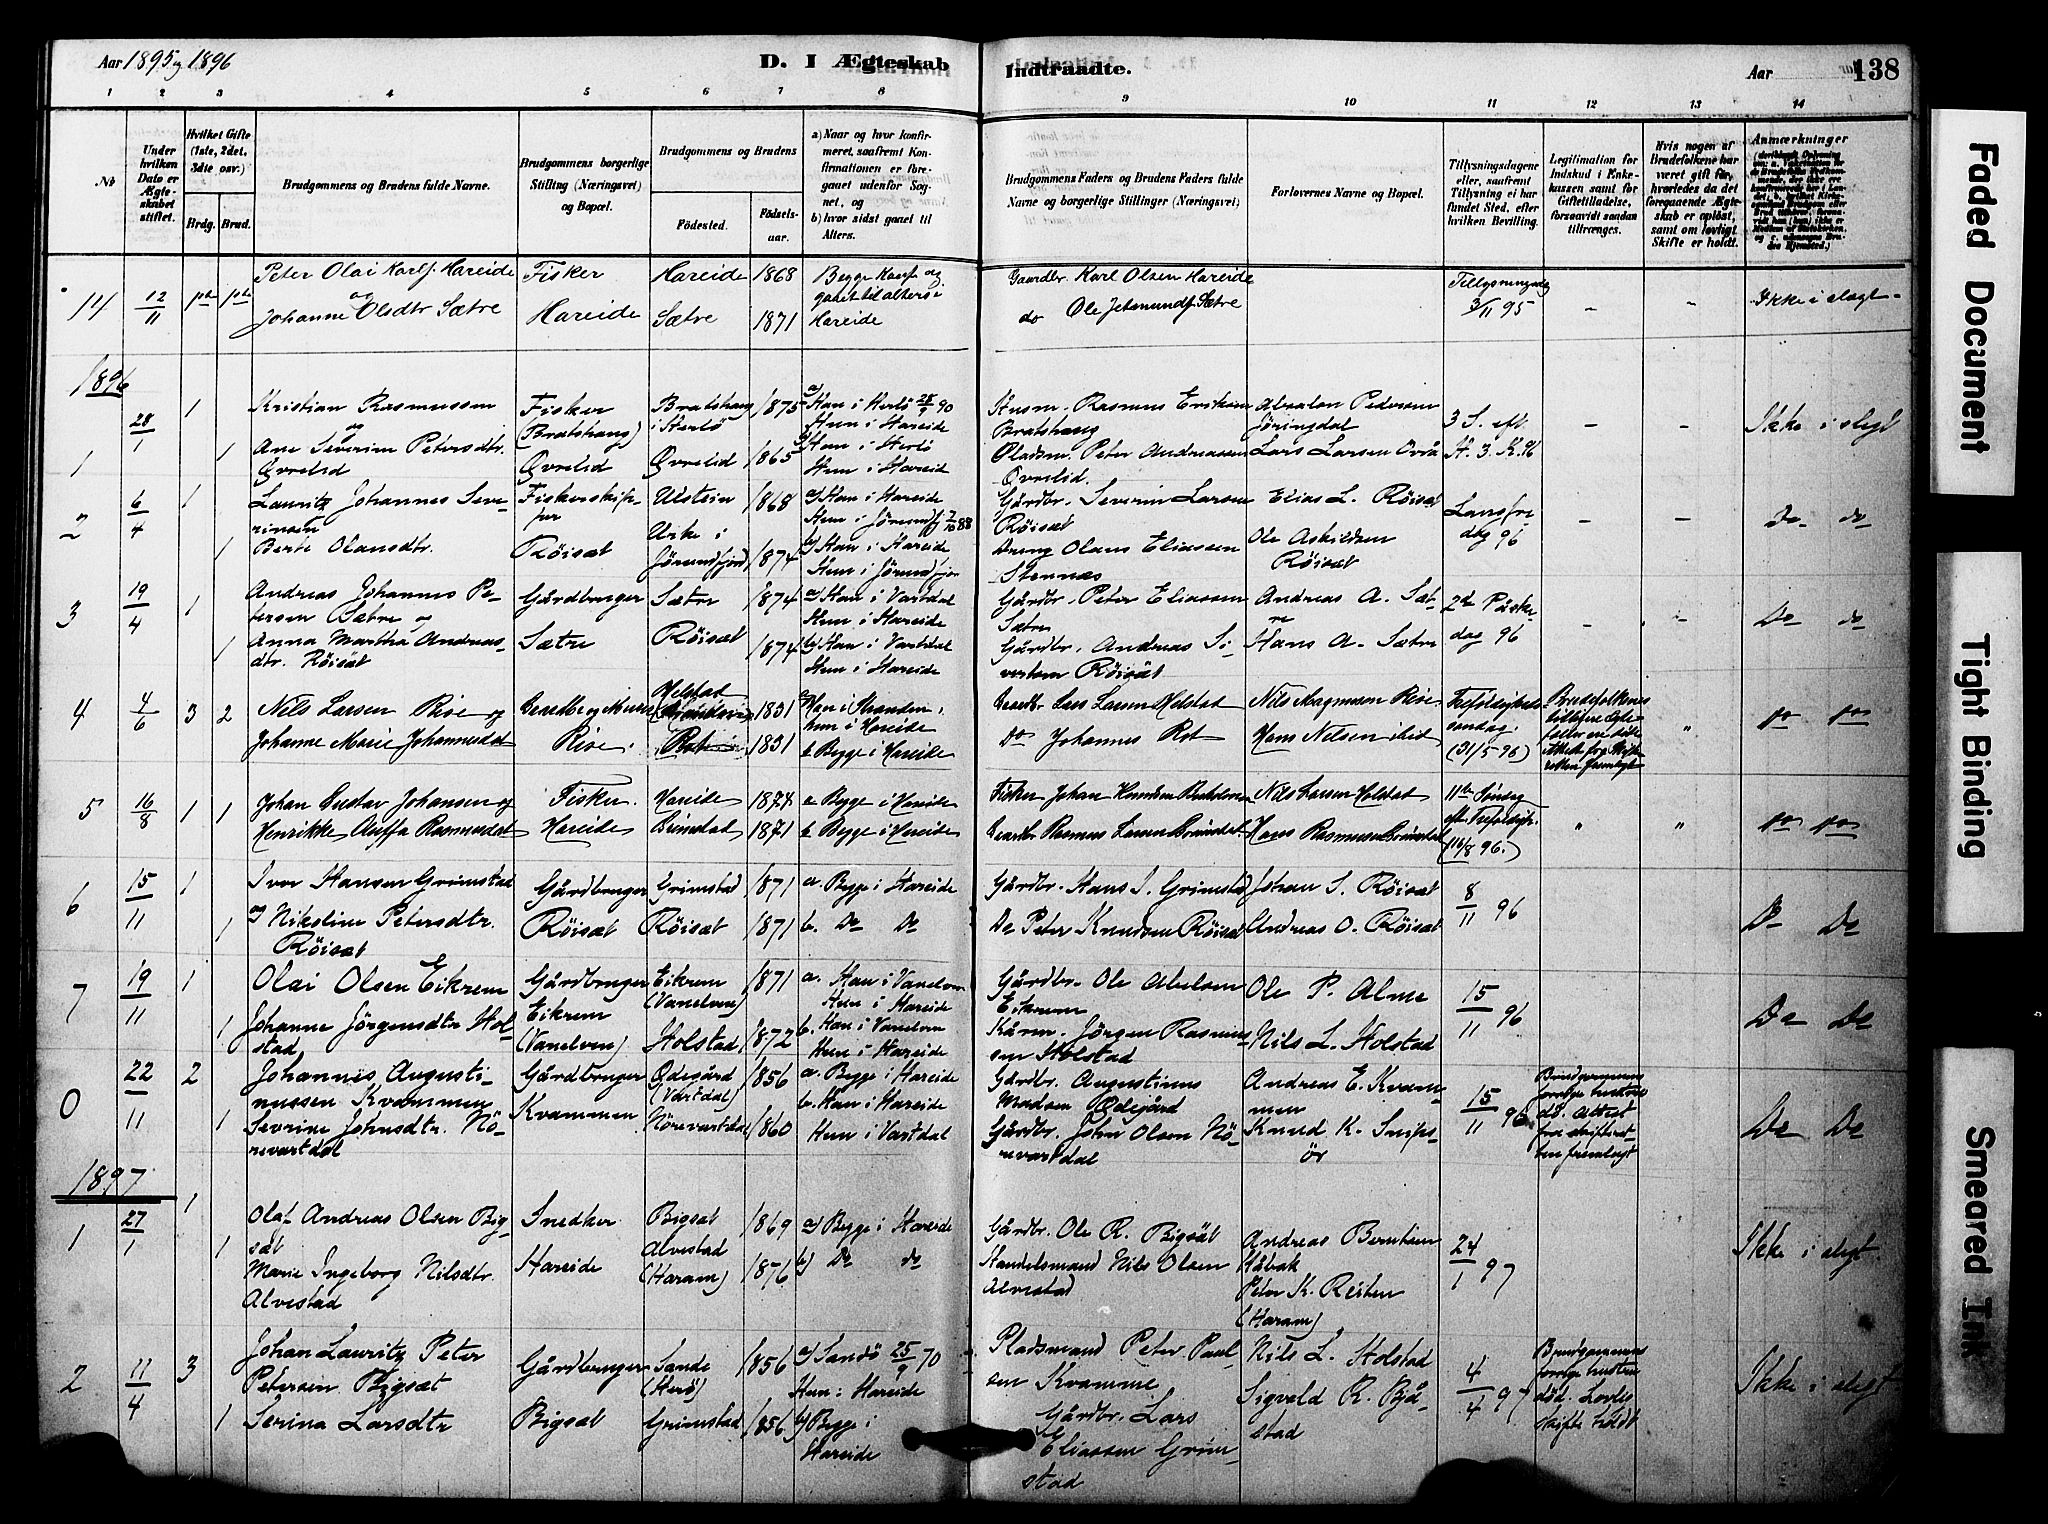 Aar 1895 og 1896
D. I Ægteskab
Indtraadte.
Aar
138
1 2 3 4 5 6 7 8
9 10 11 12 13 14
No
Under hvilken Dato er Ægteskabet stiftet.
Hvilket Gifte (1ste, 2det, 3dte osv.)
Brdg. Brud.
Brudgommens og Brudens fulde Navne.
Brudgommens borgerlige Stilling (Næringsvei) og Bopæl.
Brudgommens og Brudens
Fødested.
Fødselsaar.
a) Naar og hvor konfirmeret, saafremt Konfirmationen er foregaaet udenfor Sognet, og
b) hvor sidst gaaet til Alters.
Brudgommens Faders og Brudens Faders fulde Navne og borgerlige Stillinger (Næringsvei)
Forlovernes Navne og Bopæl.
Tillysningsdagene eller, saafremt Tillysning ei har fundet Sted, efter hvilken Bevilling.
Legitimation for Indskud i Enkekassen samt for Giftetilladelse, forsaavidt saadan tiltrænges.
Hvis nogen af Brudefolkene har været gift før, hvorledes da det foregaaende Ægteskab er opløst, samt om lovligt Skifte er holdt.
Anmærkninger
14 12/11 1ste 1ste
Peter Olai Karls. Hareide
og
Johanne Olsdtr Sætre
Fisker
Hareide
Hareide 1868
Sætre 1871
Begge konf. og
gaaet til alters i
Hareide
Gaardbr. Karl Olsen Hareide
do Ole Jetmunds. Sætre
Tillysningsdag
3/11 95
Ikke i slegt
1896
1 28/1 1 1
Kristian Rasmussen
og
Ane Severine Petersdtr.
Øvrelid
Fisker
(Bratshaug)
Øvrelid
Bratshaug
i Herö 1875
Øvrelid 1865
a) Han i Herö 28/9 90
Hun i Hareide
b) Han i Herö
Hun i Hareide
Husm. Rasmus Eriksen
Bratshaug
Pladsm. Peter Andreassen
Øvrelid.
Absalon Pedersen
Jøringdal
Lars Larsen Overå
3 S. eft.
H. 3. K. 96
Ikke i slegt
2 6/4 1 1
Lauritz Johannes Severinsen
Berte Olausdtr.
Fiskerskipper
Röisæt
Ulstein 1868
Urke i
Jörundfjord 1874
a) Han i Hareide
Hun i Jörundfj 7/10 88
b) Han i Hareide
Hun i Jörundfjor
Gårdbr. Severin Larsen
Röisæt
Dreng Olaus Eliassen
Stennæs
Elias L. Röisæt
Ole Askildsen
Röisæt
Langfredag 96
Do do
3 19/4 1 1
Andreas Johannes Petersen Sætre og
Anna Martha Andreasdtr. Röisæt
Gårdbruger
Sætre
Sætre 1874
Röisæt 1874
a) Han i Vartdal
Hun i Hareide
b) Han i Vartdal
Hun i Hareide
Gårdbr. Peter Eliassen
Sætre
Gårdbr. Andreas Sivertsen Röisæt
Andreas A. Sætre
Hans A. Sætre
2d Påskedag 96
Do do
4 4/6 3 2
Nils Larsen Rise og
Johanne Marie Johannesdat
Rise
Holstad 1831
1831
Han i Stranden,
hun i Hareide
b Begge i Hareide
Gaardbr Lars Larsen Holstad
Do Johannes Röt
Nils Magnussen Rise
Hans Nilsen ibid
Trefoldighedssøndag.
(31/5-96)
Do Do
5 16/8 1 1
Johan Gustav Johansen og
Henrikke Rasmusdat
Fisker.
Hareide
Hareide 1874
Brimstad 1871
a Begge i Hareide
b Begge i Hareide
Fisker Johan
Gaardbr Rasmus Larsen Brimstad.
Nils Larsen Holstad
Hans Rasmussen Brimstad
11te Söndag
eft. Trefoldigh.
(16/8 96.)
Do Do
6 15/11 1 1
Iver Hansen Grimstad
og Nikoline Petersdtr.
Röisæt
Gårdbruger
Röisæt
Grimstad 1871
Röisæt 1871
a. Begge i Hareide
b. Do Do
Gårdbr. Hans I. Grimstad
Do Peter Knudsen Röisæt
Johan S. Röisæt
Andreas O. Röisæt
8/11 96
Do Do
7 19/11 1 1
Olai Olsen Eikrem
Johanne Jörgensdtr Holstad
Gårdbruger
Eikrem
(Vanelven)
Eikrem
(Vanelven) 1871
Holstad 1872
a. Han i Vanelven
Hun i Hareide
b. Han i Vanelven
Hun i Hareide
Gårdbr. Ole Abelsen
Eikrem
Kårm. Jörgen Rasmussen Holstad
Ole P. Alme
Nils L. Holstad
15/11 96
Do Do
22/11 2 1
Johannes Augustinussen Kvammen
Severine Johnsdtr. Nörevartdal
Gårdbruger
Kvammen
Ødegård
(Vartdal) 1856
Nörevartdal 1860
a. Begge i Hareide
b. Han i Hareide
Hun i Vartdal
Gårdbr. Augustinus
Madsen Ødegård
Gårdbr. John Olsen Nörevartdal
Andreas E. Kvammen
Knud K. Snipsör
15/11 96
Brudgommens
forrige hustru
död. Attest
fra skifteretten fremlagt
Do Do
1897
1 27/1 1 1
Olaf Andreas Olsen Bigsæt
Marie Ingeborg Nilsdtr.
Alvestad
Snedker
Hareide
Bigsæt 1869
Alvestad
(Haram) 1876
a) Begge i Hareide
b) Do do
Gårdbr. Ole R. Bigsæt
Handelsmand Nils Olsen
Alvestad
Andreas Berntsen
Håbak
Peter K. Reiten
(Haram)
24/1 97
Ikke i slegt
2 11/4 3 1
Johan Lauritz Peter
Petersen Bigsæt
Serina Larsdtr
Gårdbruger
Bigsæt
Sande
(Herö) 1856
Grimstad 1856
a) Sandö 25/9 70
Hun i Hareide
b) Begge i
Hareide
Pladsmand Peter Paulsen Kvamme
Gårdbr. Lars
Eliassen Grimstad
Nils L. Holstad
Sigvald R. Bjåstad
4/4 97
Brudgommens
forrige hustru
död. Lovlig
skifte holdt
Ikke i slegt
Faded Document
Tight Binding
Smeared Ink